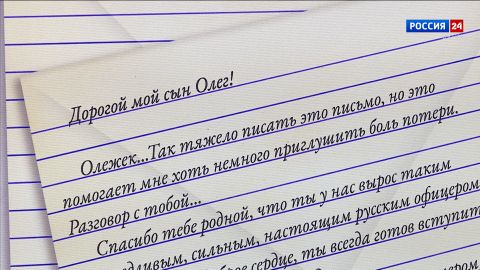 РОССИЯ 24
Дорогой мой сын Олег!
Олежек...Так тяжело писать это письмо, но это
помогает мне хоть немного приглушить боль потери.
Разговор с тобой...
Спасибо тебе родной, что ты у нас вырос таким
сильным, настоящим русским офицером
сердце, ты всегда готов вступит